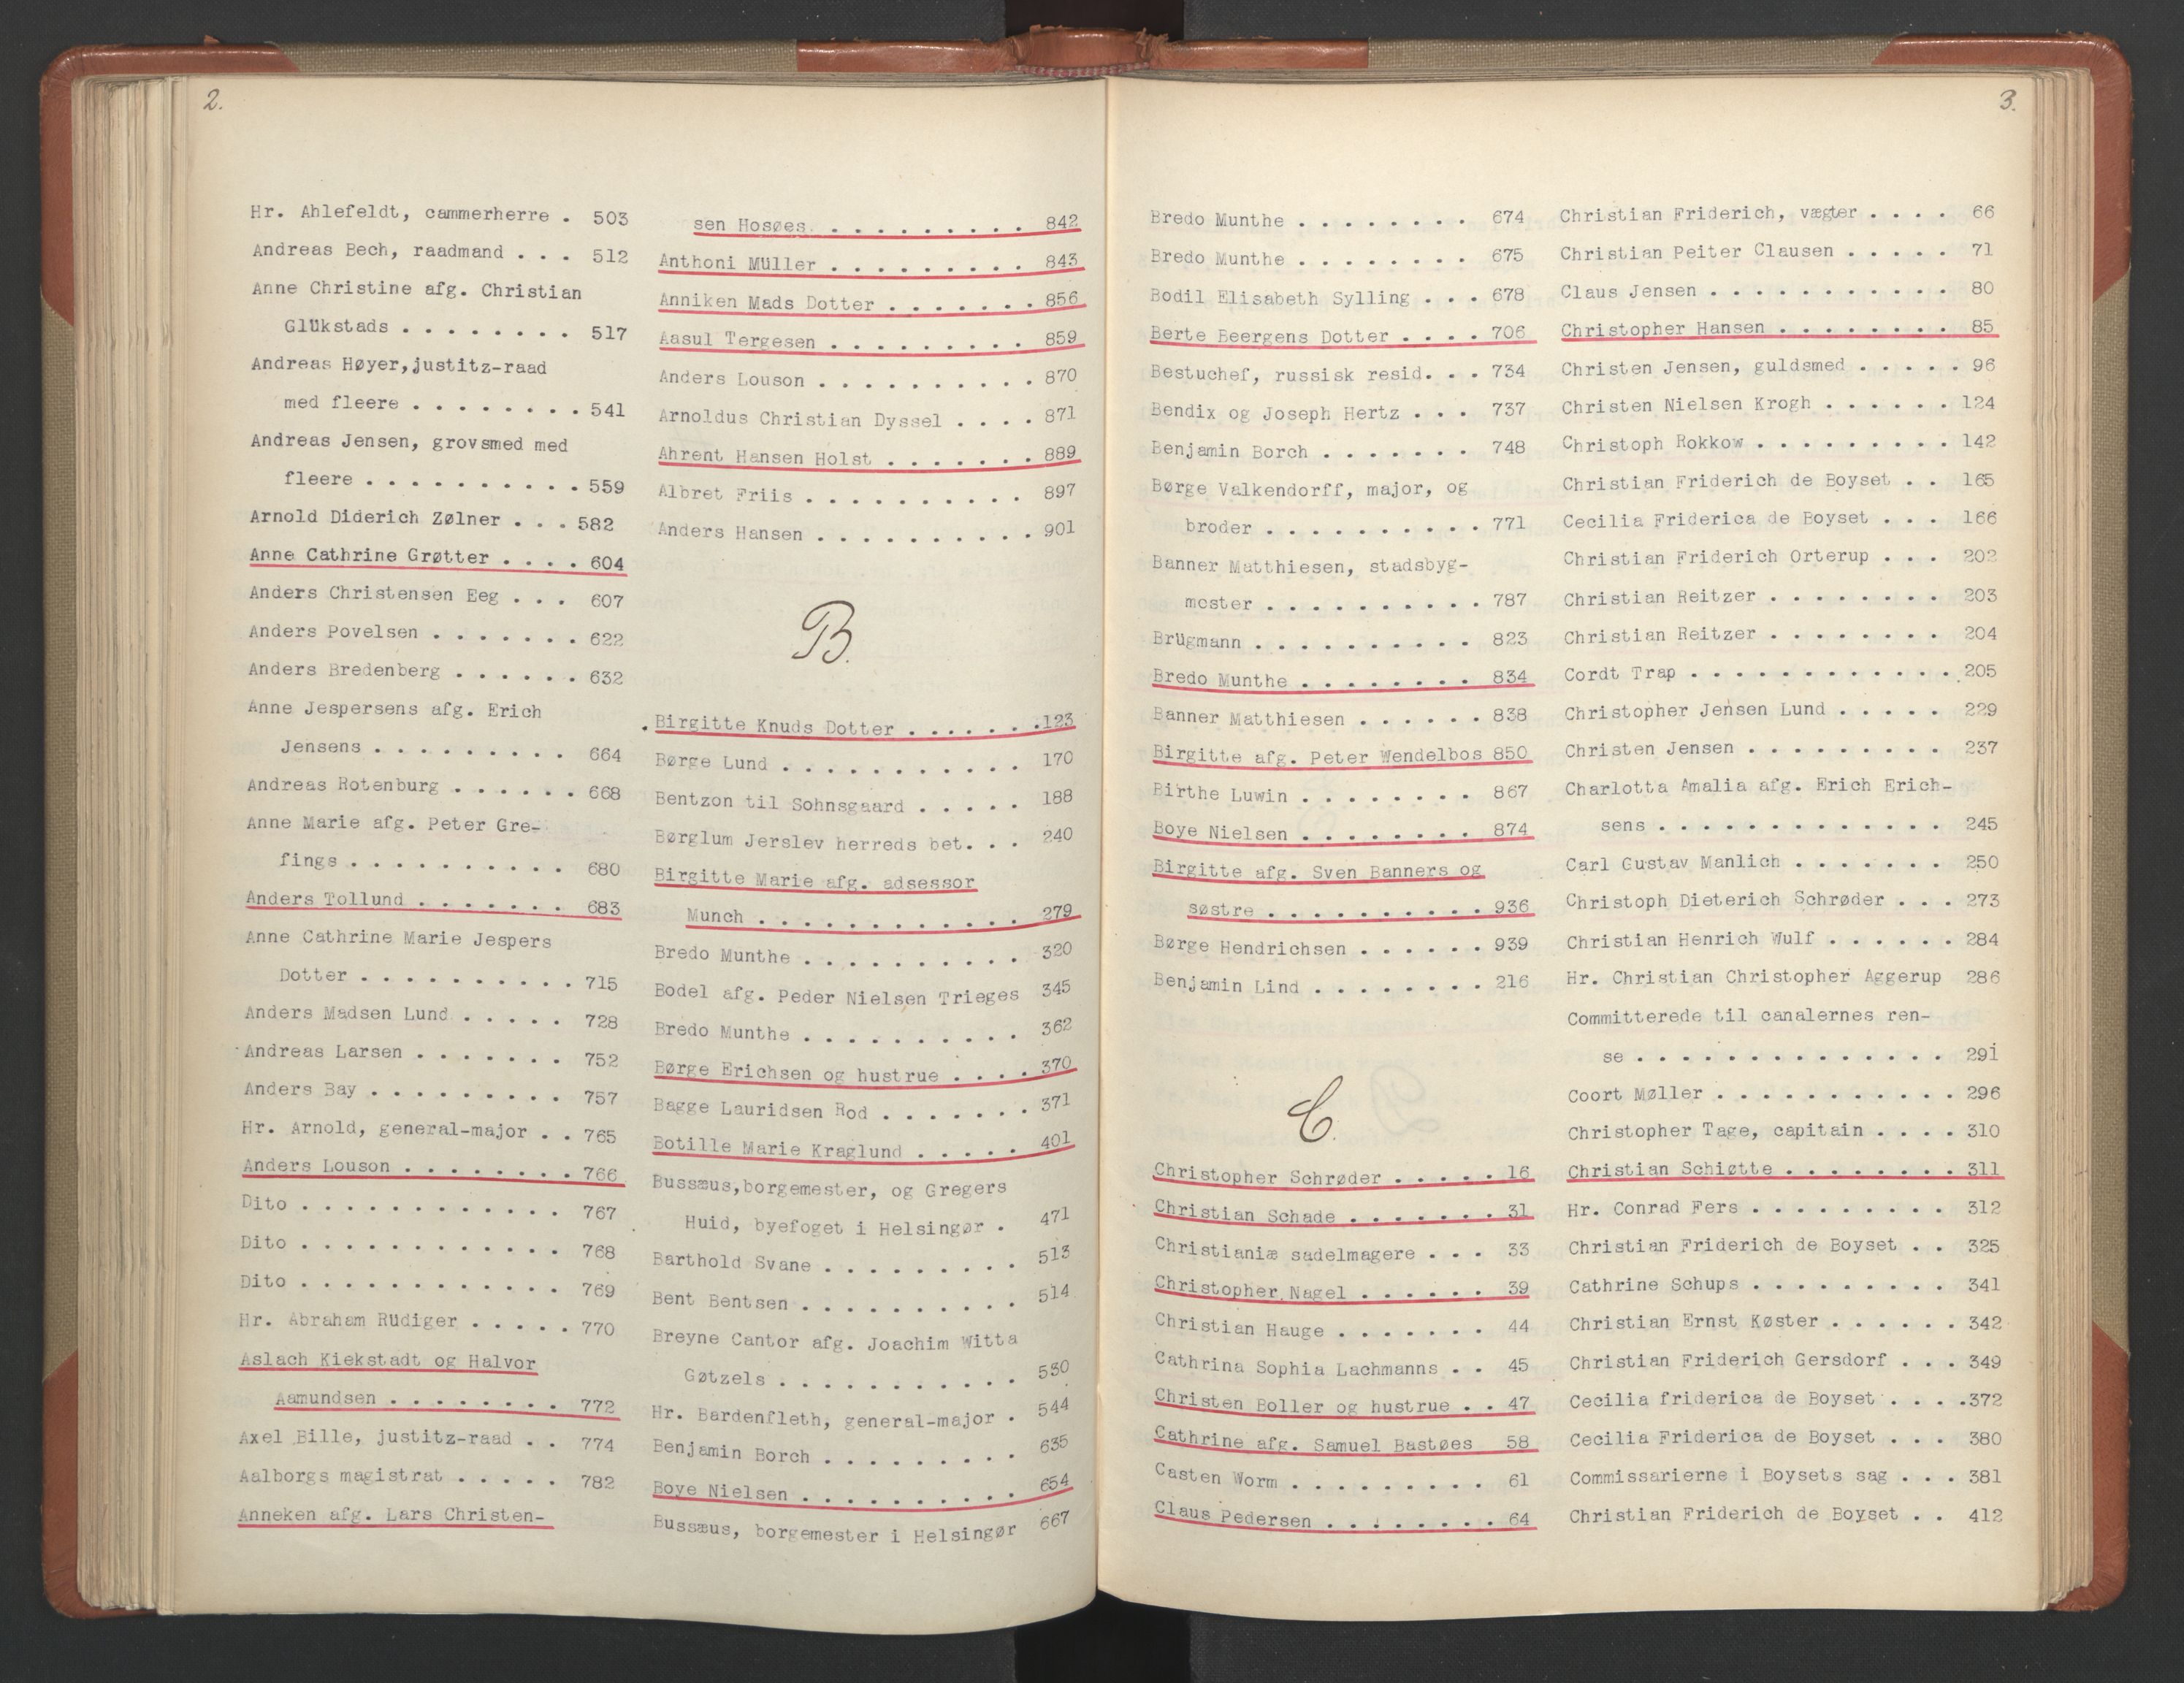 2.
Hr. Ahlefeldt, cammerherre . 503
Andreas Bech, raadmand . . . 512
Anne Christine afg. Christian
Glükstads . . . . . . . . 517
Andreas Høyer,justitz-raad
med fleere . . . . . . . . 541
Andreas Jensen, grovsmed med
fleere . . . . . . . . . . 559
Arnold Diderich Zølner . . . 582
Anne Cathrine Grøtter . . . . 604
Anders Christensen Eeg . . . 607
Anders Povelsen . . . . . . . 622
Anders Bredenberg . . . . . . 632
Anne Jespersens afg. Erich
Jensens . . . . . . . . . 664
Andreas Rotenburg . . . . . . 668
Anne Marie afg. Peter Gre-
fings . . . . . . . . . . 680
Anders Tollund . . . . . . . 683
Anne Cathrine Marie Jespers
Dotter . . . . . . . . . . 715
Anders Madsen Lund . . . . . 728
Andreas Larsen . . . . . . . 752
Anders Bay . . . . . . . . . 757
Hr. Arnold, general-major . . 765
Anders Louson . . . . . . . . 766
Dito . . . . . . . . . . . . 767
Dito . . . . . . . . . . . . 768
Dito . . . . . . . . . . . . 769
Hr. Abraham Rüdiger . . . . . 770
Aslach Kiekstadt og Halvor
Aamundsen . . . . . . . . 772
Axel Bille, justitz-raad . . 774
Aalborgs magistrat . . . . . 782
Anneken afg. Lars Christen-
sen Hosøes. . . . . . . . . . 842
Anthoni Müller . . . . . . . . . 843
Anniken Mads Dotter . . . . . . . 856
Aasul Tergesen . . . . . . . . . 859
Anders Louson . . . . . . . . . . 870
Arnoldus Christian Dyssel . . . . 871
Ahrent Hansen Holst . . . . . . . 889
Albret Friis . . . . . . . . . . 897
Anders Hansen . . . . . . . . . . 901
B.
Birgitte Knuds Dotter . . . . . . .123
Børge Lund . . . . . . . . . . . 170
Bentzon til Sohnsgaard . . . . . 188
Børglum Jerslev herreds bet. . . 240
Birgitte Marie afg. adsessor
Munch . . . . . . . . . . . . 279
Bredo Munthe . . . . . . . . . . 320
Bodel afg. Peder Nielsen Trieges 345
Bredo Munthe . . . . . . . . . . 362
Børge Erichsen og hustrue . . . . 370
Bagge Lauridsen Rod . . . . . . . 371
Botille Marie Kraglund . . . . . 401
Bussæus,borgemester, og Gregers
Huid, byefoget i Helsingør . 471
Barthold Svane . . . . . . . . . 513
Bent Bentsen . . . . . . . . . . 514
Breyne Cantor afg. Joachim Witta
Gøtzels . . . . . . . . . . . 530
Hr. Bardenfleth, general-major . 544
Benjamin Borch . . . . . . . . . 635
Boye Nielsen . . . . . . . . . . 654
Bussæus, borgemester i Helsingør 667
3.
Bredo Munthe . . . . . . . . 674
Bredo Munthe . . . . . . . . 675
Bodil Elisabeth Sylling . . . 678
Berte Beergens Dotter . . . . 706
Bestuchef, russisk resid. . . 734
Bendix og Joseph Hertz . . . 737
Benjamin Borch . . . . . . . 748
Børge Valkendorff, major, og
broder . . . . . . . . . . 771
Banner Matthiesen, stadsbyg-
mester . . . . . . . . . . 787
Brügmann . . . . . . . . . . 823
Bredo Munthe . . . . . . . . 834
Banner Matthiesen . . . . . . 838
Birgitte afg. Peter Wendelbos 850
Birthe Luwin . . . . . . . . 867
Boye Nielsen . . . . . . . . 874
Birgitte afg. Sven Banners og
søstre . . . . . . . . . . 936
Børge Hendrichsen . . . . . . 939
Benjamin Lind . . . . . . . . 216
C.
Christopher Schrøder . . . . . 16
Christian Schade . . . . . . . 31
Christianiæ sadelmagere . . . 33
Christopher Nagel . . . . . . 39
Christian Hauge . . . . . . . 44
Cathrina Sophia Lachmanns . . 45
Christen Boller og hustrue . . 47
Cathrine afg. Samuel Bastøes 58
Casten Worm . . . . . . . . . 61
Claus Pedersen . . . . . . . . 64
Christian Friderich, vægter . . . . 66
Christian Peiter Clausen . . . . . 71
Claus Jensen . . . . . . . . . . . 80
Christopher Hansen . . . . . . . . 85
Christen Jensen, guldsmed . . . . . 96
Christen Nielsen Krogh . . . . . . 124
Christoph Rokkow . . . . . . . . . 142
Christian Friderich de Boyset . . 165
Cecilia Friderica de Boyset . . . 166
Christian Friderich Orterup . . . 202
Christian Reitzer . . . . . . . . 203
Christian Reitzer . . . . . . . . 204
Cordt Trap . . . . . . . . . . . . 205
Christopher Jensen Lund . . . . . 229
Christen Jensen . . . . . . . . . 237
Charlotta Amalia afg. Erich Erich-
sens . . . . . . . . . . . . . 245
Carl Gustav Manlich . . . . . . . 250
Christoph Dieterich Schrøder . . . 273
Christian Henrich Wulf . . . . . . 284
Hr. Christian Christopher Aggerup 286
Committerede til canalernes ren-
se . . . . . . . . . . . . . . 291
Coort Møller . . . . . . . . . . . 296
Christopher Tage, capitain . . . . 310
Christian Schiøtte . . . . . . . . 311
Hr. Conrad Fers . . . . . . . . . 312
Christian Friderich de Boyset . . 325
Cathrine Schups . . . . . . . . . 341
Christian Ernst Køster . . . . . . 342
Christian Friderich Gersdorf . . . 349
Cecilia friderica de Boyset . . . .372
Cecilia Friderica de Boyset . . . 380
Commissarierne i Boysets sag . . . 381
Christian Friderich de Boyset . . 412